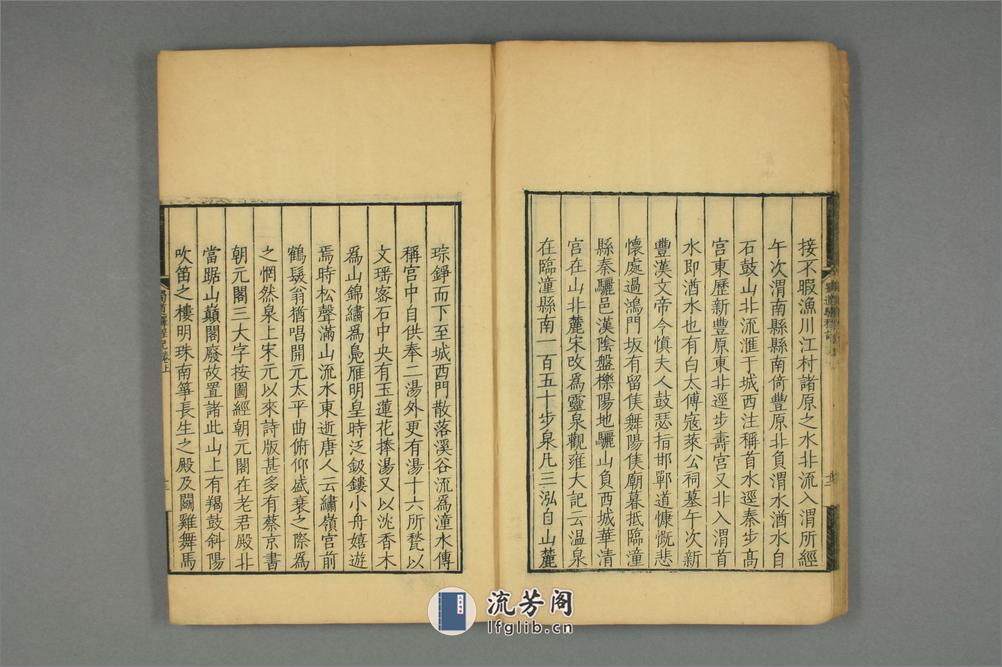 接不暇漁川江村諸原之水北流入渭所經
午次渭南縣縣南倚豐原北負渭水湭水自
石鼓山北流滙于城西注稱首水逕秦步高
宮東歷新豐原東北逕步壽宮又北入渭首
水即湭水也有白太傅寇萊公祠墓午次新
豐漢文帝令慎夫人鼓瑟指邯鄲道慷慨悲
懷處過鴻門坂有留侯舞陽侯廟暮抵臨潼
縣秦驪邑漢陰盤櫟陽地驪山負西城華清
宮在山北麓宋改爲靈泉觀雍大記云温泉
在臨潼縣南一百五十步泉凡三泓自山麓
琮錚而下至城西門散落溪谷流爲潼水傳
稱宮中自供奉二湯外更有湯十六所甃以
文瑶宻石中央有玉蓮花捧湯又以沈香木
爲山錦繡爲鳧雁明皇時泛鈒鏤小舟嬉遊
焉時松聲滿山流水東逝唐人云繡嶺宮前
鶴髮翁猶唱開元太平曲俯仰盛衰之際爲
之惘然泉上宋元以來詩版甚多有蔡京書
朝元閣三大字按圖經朝元閣在老君殿北
當踞山巔閣廢故置諸此山上有羯鼓斜陽
吹笛之樓明珠南筝長生之殿及鬭雞舞馬
蜀道驛程記卷上
流芳阁
lfglib.cn